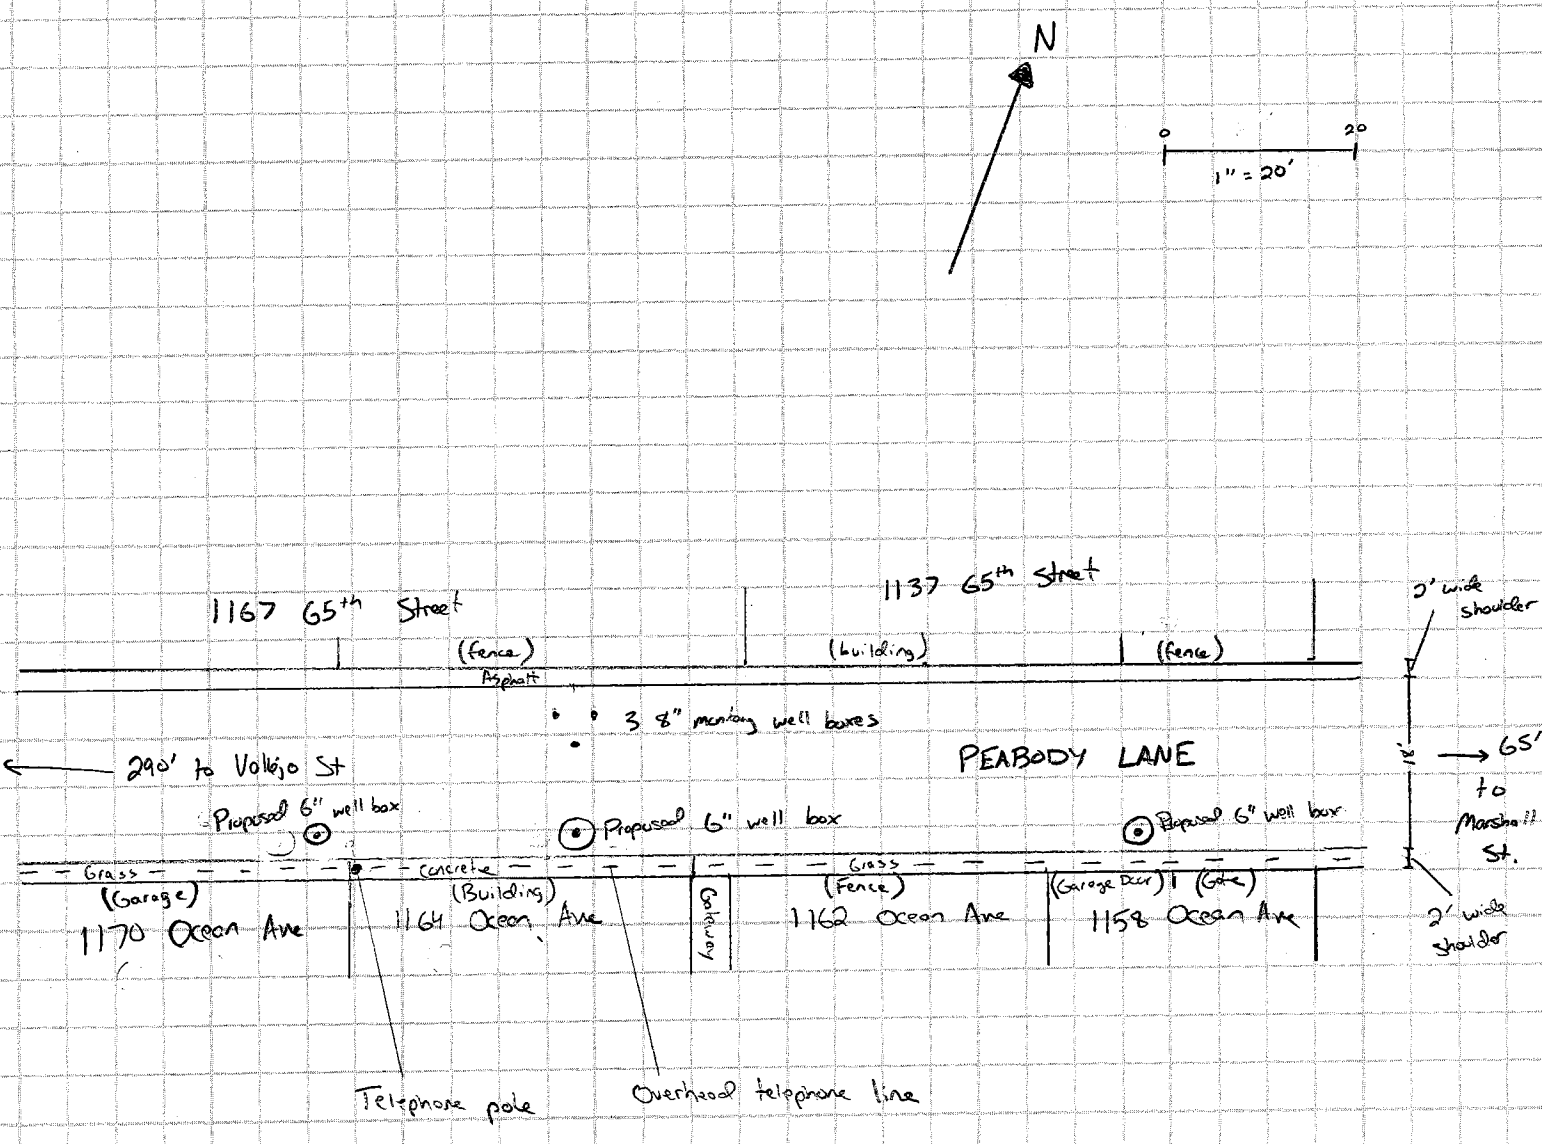 N
0 20
1" = 20'
1137 65th Street
1167 65th Street
2' wide
shoulder
(fence)
(building)
(fence)
Asphalt
3 8" montory well boxes
PEABODY LANE
65'
to
Marshall
St.
290' to Vallejo St
Proposed 6" well box
Proposed 6" well box
Proposed 6" well box
Grass
concrete
Grass
(Garage)
(Building)
Gateway
(Fence)
(Garage Door)
(Gate)
1170 Ocean Ave
1164 Ocean Ave
1162 Ocean Ave
1158 Ocean Ave
2' wide
shoulder
Telephone pole
Overhead telephone line